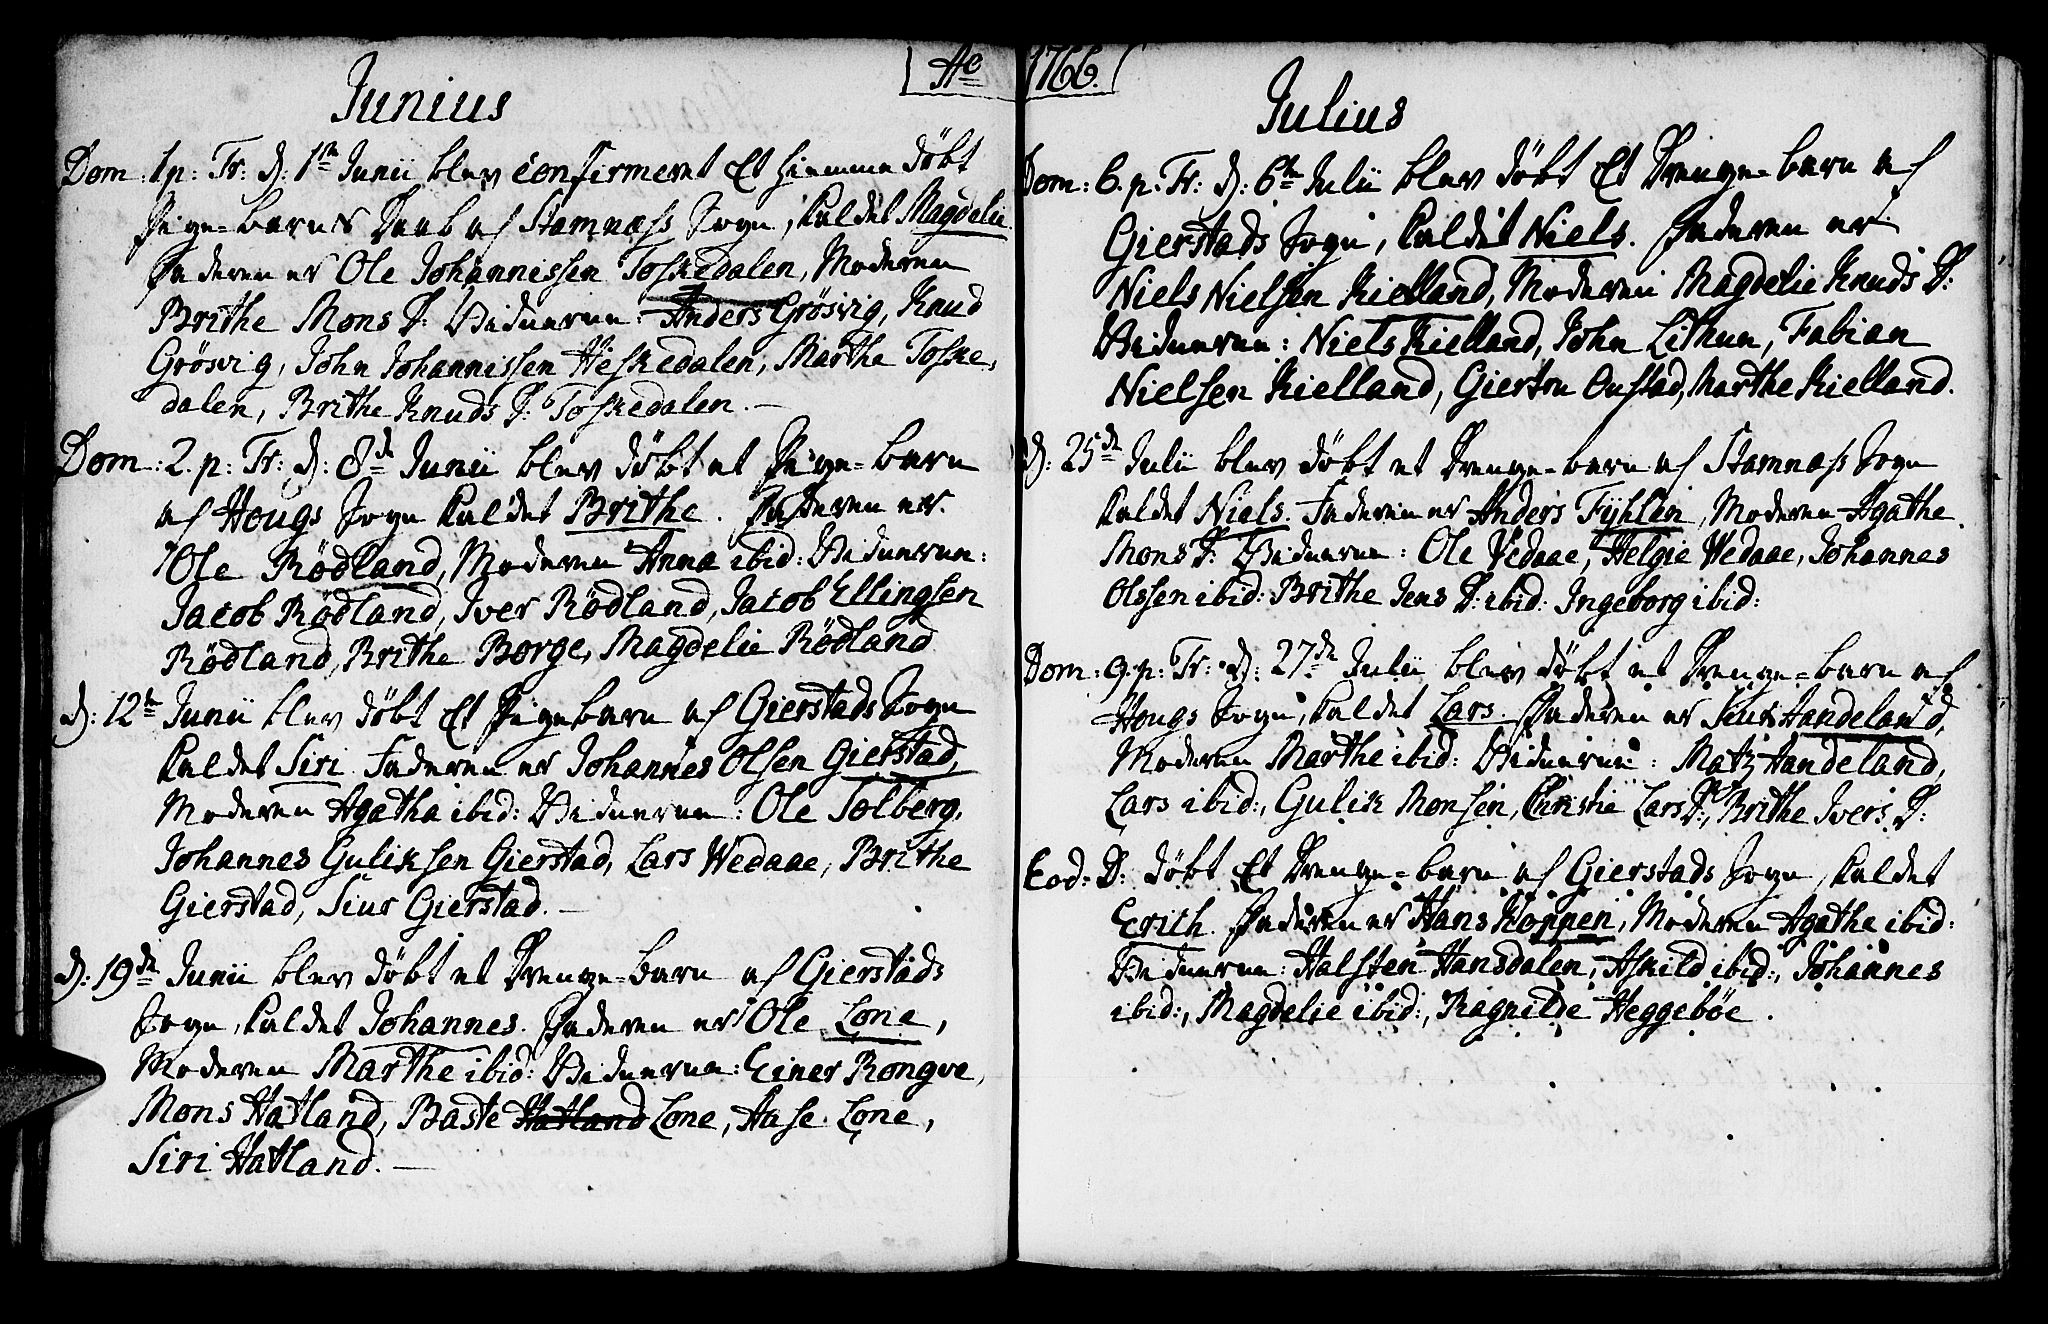 Ao 1766.
Junius
Dom: 1 p: Tr: d: 1te Junii blev confirmeret Et hiemme døbt
Pige-barns Daab af Stamnæss Sogn, kaldet Magdelie.
Faderen er Ole Johannissen Toskedalen, Moderen
Brithe Mons D: Vidnerne: Anders Grösvig, Knud
Grösvig, John Johannissen Heskedalen, Marthe Toske,
dalen, Brithe Knuds D: Toskedalen. —
Dom: 2. p: Tr: d: 8de Junii blev døbt et Pige-barn
af Hougs Sogn kaldet Brithe. Faderen er
Ole Rödland, Moderen Anna ibid: Vidnerne:
Jacob Rödland, Iver Rödland, Jacob Ellingsen
Rödland, Brithe Borge, Magdelie Rödland
d: 12te Junii blev døbt Et Pigebarn af Gierstads Sogn
kaldet Siri. Faderen er Johannes Olsen Gierstad,
Moderen Agatha ibid: Vidnerne: Ole Tolberg,
Johannes Guliksen Gierstad, Lars Wedaae, Brithe
Gierstad, Siur Gierstad. —
d: 19de Junii blev døbt et Drenge-barn af Gierstads
Sogn, kaldet Johannes. Faderen er Ole Lone,
Moderen Marthe ibid: Vidnerne: Einer Rongve,
Mons Hatland, Baste Hatland Lone, Aase Lone,
Siri Hatland. —
Julius
Dom: 6. p: Tr: d: 6te Julii blev døbt Et Drenge-barn af
Gierstads Sogn, kaldet Niels. Faderen er
Niels Nielsen Kielland, Moderen Magdelie Knuds D:
Vidnerne: Niels Kielland, John Lithun, Fabian
Nielsen Kielland, Giertru Oustad, Marthe Kielland.
d: 25de Julii blev døbt et Drenge-barn af Stamnæss Sogn
kaldet Niels. Faderen er Anders Fyhlin, Moderen Agathe
Mons D: Vidnerne: Ole Vedaae, Helgie Wedaae, Johannes
Olssen ibid: Brithe Jens D: ibid: Ingeborg ibid:
Dom: 9. p: Tr: d: 27de Julii blev døbt et Drenge-barn af
Hougs Sogn, kaldet Lars. Faderen er Siur Handeland,
Moderen Marthe ibid: Vidnerne: Matz Handeland,
Lars ibid:, Gulik Monsen, Christie Lars D:, Brithe Ivers D:
Eod: D: døbt Et Drenge-barn af Gierstads Sogn, kaldet
Erich. Faderen er Hans Koppen, Moderen Agathe ibid:
Vidnerne: Halsten Hansdalen, Askild ibid:, Johannes
ibid:, Magdelie ibid:, Ragnilde Heggebøe.